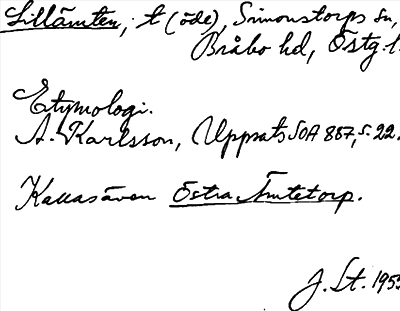 Lillämten, t (öde), Simonstorps sn,
Bråbo hd, Östg.l.
Etymologi.
A. Karlsson, Uppsats SOA 887, s. 22.
Kallas även Östra Ämtetorp.
J. St. 1955